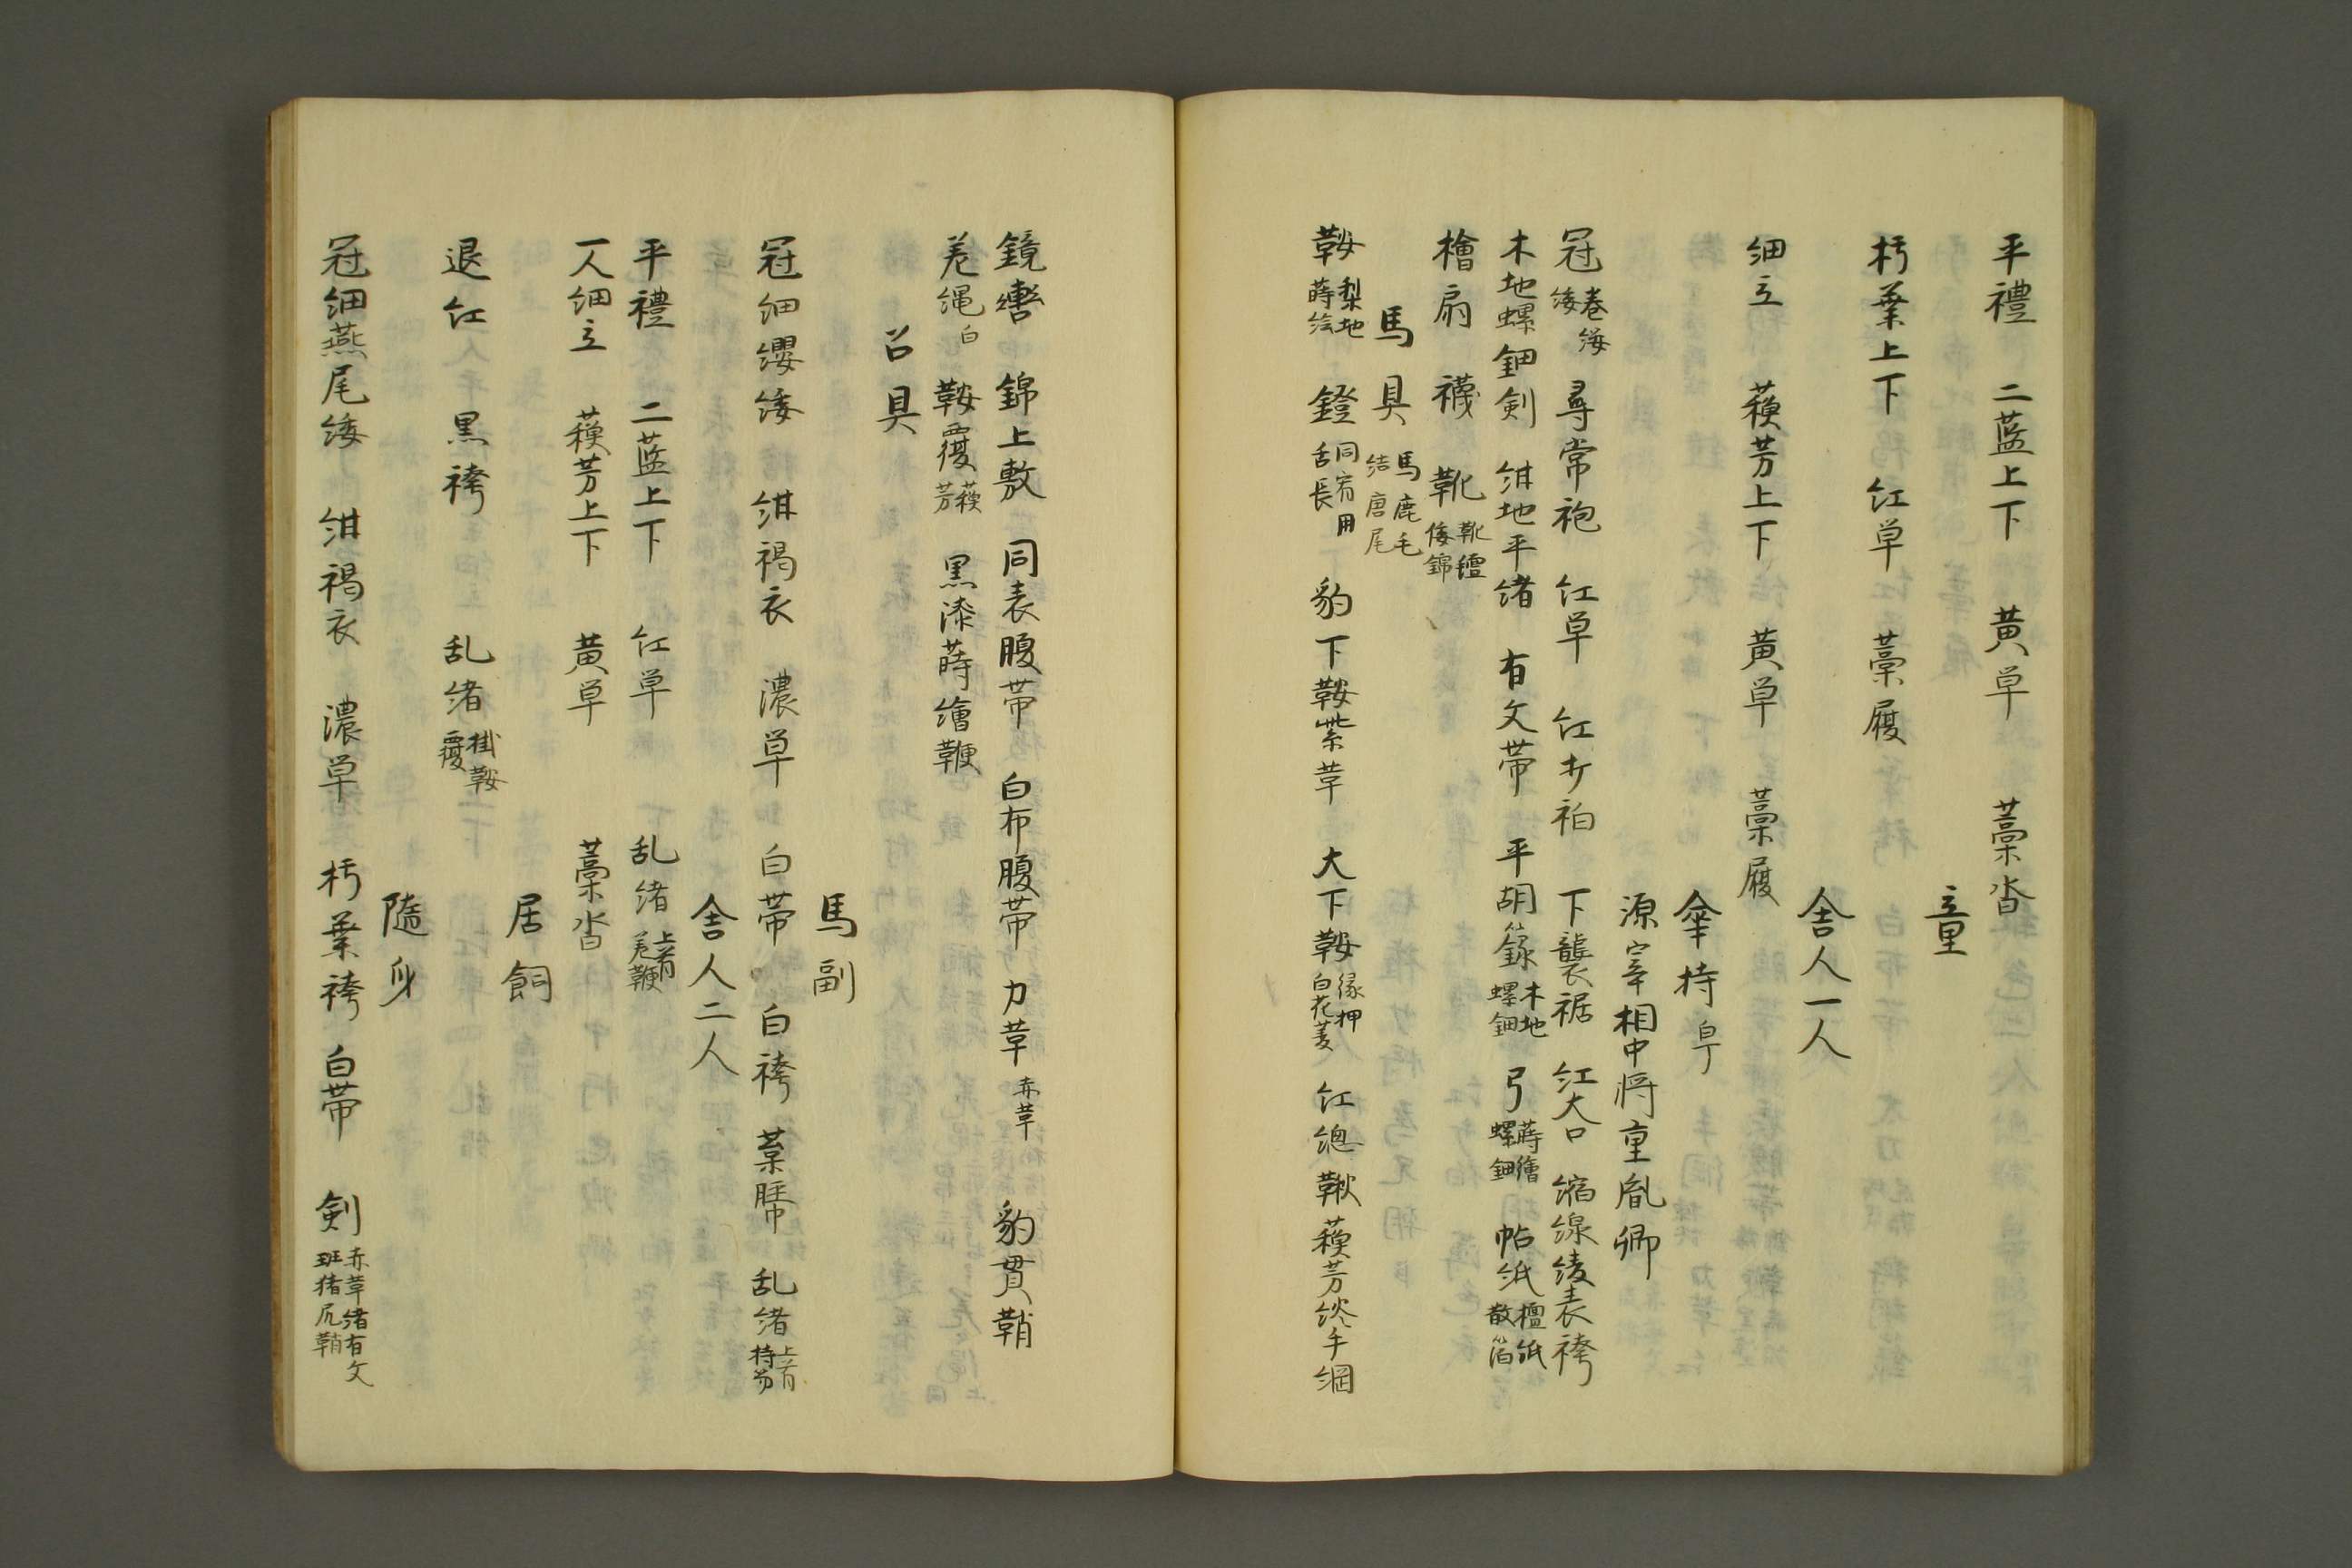 平禮 二藍上下 黄単 藁沓
童
朽葉上下 紅単 藁履
舎人一人
細立 蘓芳上下 黄単 藁履
傘持 白丁
源宰相中将重胤卿
冠 巻纓 緌 尋常袍 紅単 紅打衵 下襲裾 紅大口 縮線綾表袴
木地螺鈿剣 紺地平緒 有文帯 平胡籙 木地 螺鈿 弓 蒔繪 螺鈿 帖紙 檀紙 散箔
檜扇 襪 靴 靴氈 倭錦
馬具 馬鹿毛 結唐尾
鞍 梨地 蒔絵 鐙 同宥用 舌長 豹下鞍 紫革 大下鞍 縁押 白花菱 紅總鞦 蘓芳淡手綱
鏡轡 錦上敷 同表腹帯 白布腹帯 力革 赤革 豹貫鞘
差縄 白 鞍覆 蘓芳 黒漆蒔繪鞭
召具
馬副
冠細纓緌 紺褐衣 濃単 白帯 白袴 葉脛巾 乱緒 上首 持笏
舎人二人
平禮 二藍上下 紅単 乱緒 上首 差鞭
一人細立 蘓芳上下 黄単 藁沓
居飼
退紅 黒袴 乱緒 掛鞍覆
随身
冠細燕尾緌 紺褐衣 濃単 朽葉袴 白帯 剣 赤革緒有文 斑猪尻鞘